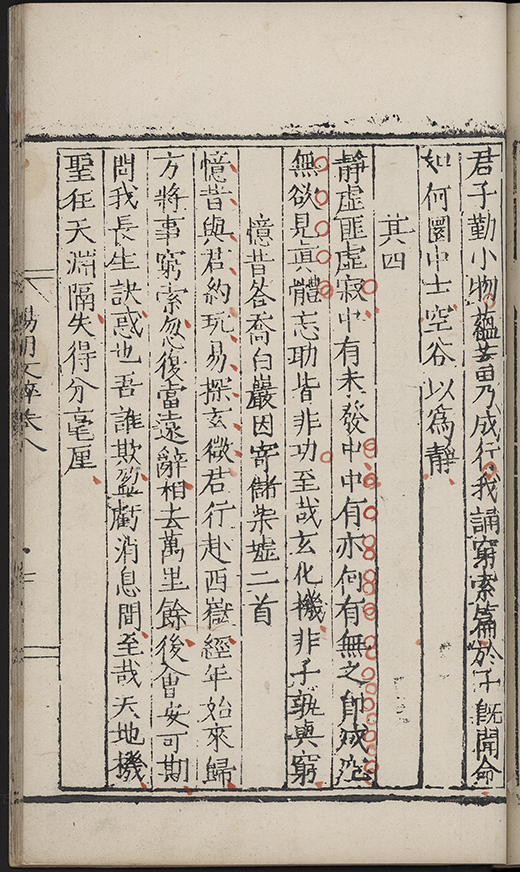 君子勤小物蘊蓄乃成行我誦窮索篇於子旣聞命
如何圜中士空谷以爲靜
其四
靜虛匪虛寂中有未發中中有亦何有無之卽成空
無欲見眞體忘助皆非功至哉玄化機非子孰與窮
憶昔答喬白巖因寄儲柴墟二首
憶昔與君約玩易探玄微君行赴西嶽經年始來歸
方將事窮索忽復當遠辭相去萬里餘後會安可期
問我長生訣惑也吾誰欺盈虧消息間至哉天地機
聖狂天淵隔失得分毫厘
陽明文粹卷八